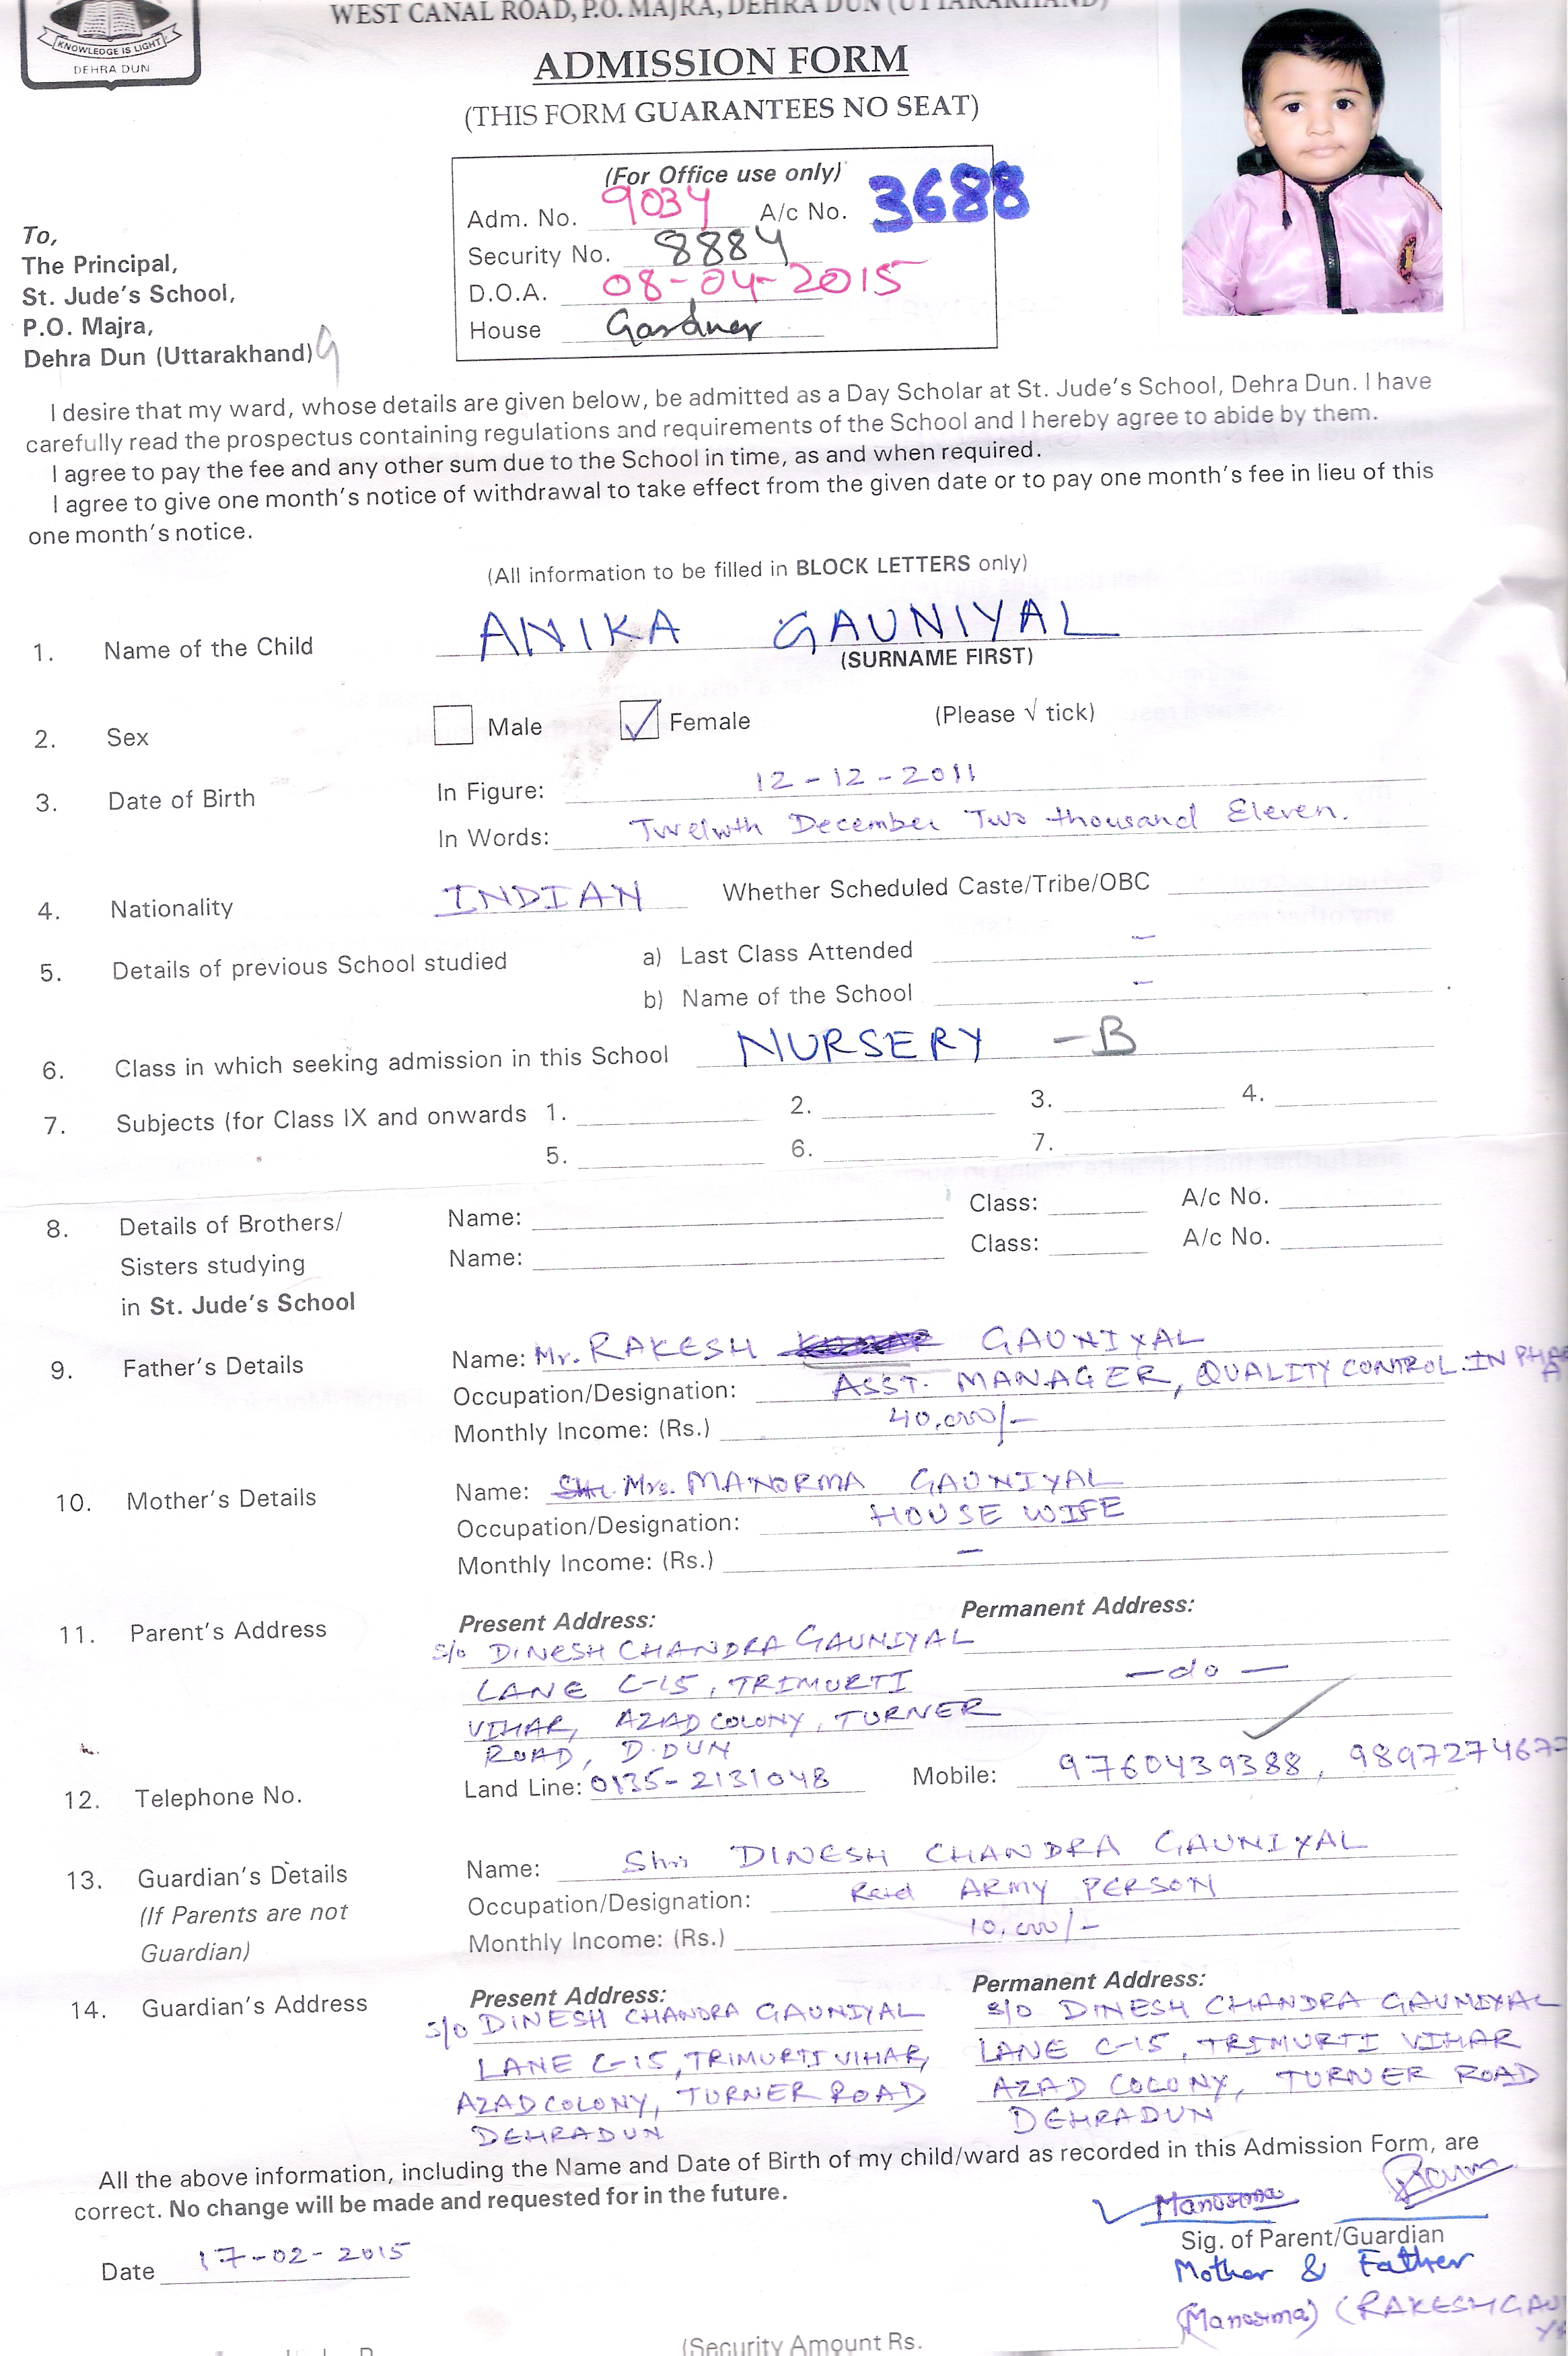 WEST CANAL ROAD, P.O. MAJRA, DEHRA DUN (UTTARAKHAND)
KNOWLEDGE IS LIGHT
DEHRA DUN
ADMISSION FORM
(THIS FORM GUARANTEES NO SEAT)
(For Office use only)
Adm. No. 9034 A/c No. 3688
Security No. 8884
D.O.A. 08-04-2015
House Gardner
To,
The Principal,
St. Jude's School,
P.O. Majra,
Dehra Dun (Uttarakhand) G
I desire that my ward, whose details are given below, be admitted as a Day Scholar at St. Jude's School, Dehra Dun. I have
carefully read the prospectus containing regulations and requirements of the School and I hereby agree to abide by them.
I agree to pay the fee and any other sum due to the School in time, as and when required.
I agree to give one month's notice of withdrawal to take effect from the given date or to pay one month's fee in lieu of this
one month's notice.
(All information to be filled in BLOCK LETTERS only)
1. Name of the Child ANIKA GAUNIYAL
(SURNAME FIRST)
2. Sex Male Female (Please √ tick)
3. Date of Birth In Figure: 12-12-2011
In Words: Twelwth December Two thousand Eleven.
4. Nationality INDIAN Whether Scheduled Caste/Tribe/OBC
5. Details of previous School studied a) Last Class Attended -
b) Name of the School -
6. Class in which seeking admission in this School NURSERY - B
7. Subjects (for Class IX and onwards 1. 2. 3. 4.
5. 6. 7.
8. Details of Brothers/ Name: Class: A/c No.
Sisters studying Name: Class: A/c No.
in St. Jude's School
9. Father's Details Name: Mr. RAKESH GAUNIYAL
Occupation/Designation: ASST. MANAGER, QUALITY CONTROL. IN
Monthly Income: (Rs.) 40,000/-
10. Mother's Details Name: Mrs. MANORMA GAUNIYAL
Occupation/Designation: HOUSE WIFE
Monthly Income: (Rs.) -
11. Parent's Address Present Address: Permanent Address:
S/o DINESH CHANDRA GAUNIYAL
LANE C-15, TRIMURTI - do -
VIHAR, AZAD COLONY, TURNER
ROAD, D.DUN
12. Telephone No. Land Line: 0135-2131048 Mobile: 9760439388,
13. Guardian's Details Name: Shri DINESH CHANDRA GAUNIYAL
(If Parents are not Occupation/Designation: Retd ARMY PERSON
Guardian) Monthly Income: (Rs.) 10,000/-
14. Guardian's Address Present Address: Permanent Address:
S/o DINESH CHANDRA GAUNIYAL S/o DINESH CHANDRA GAUNIYAL
LANE C-15, TRIMURTI VIHAR, LANE C-15, TRIMURTI VIHAR
AZAD COLONY, TURNER ROAD AZAD COLONY, TURNER ROAD
DEHRADUN DEHRADUN
All the above information, including the Name and Date of Birth of my child/ward as recorded in this Admission Form, are
correct. No change will be made and requested for in the future.
Manorma
Sig. of Parent/Guardian
Date 17-02-2015
Mother & Father
(Manorma) (RAKESH
(Security Amount Rs.